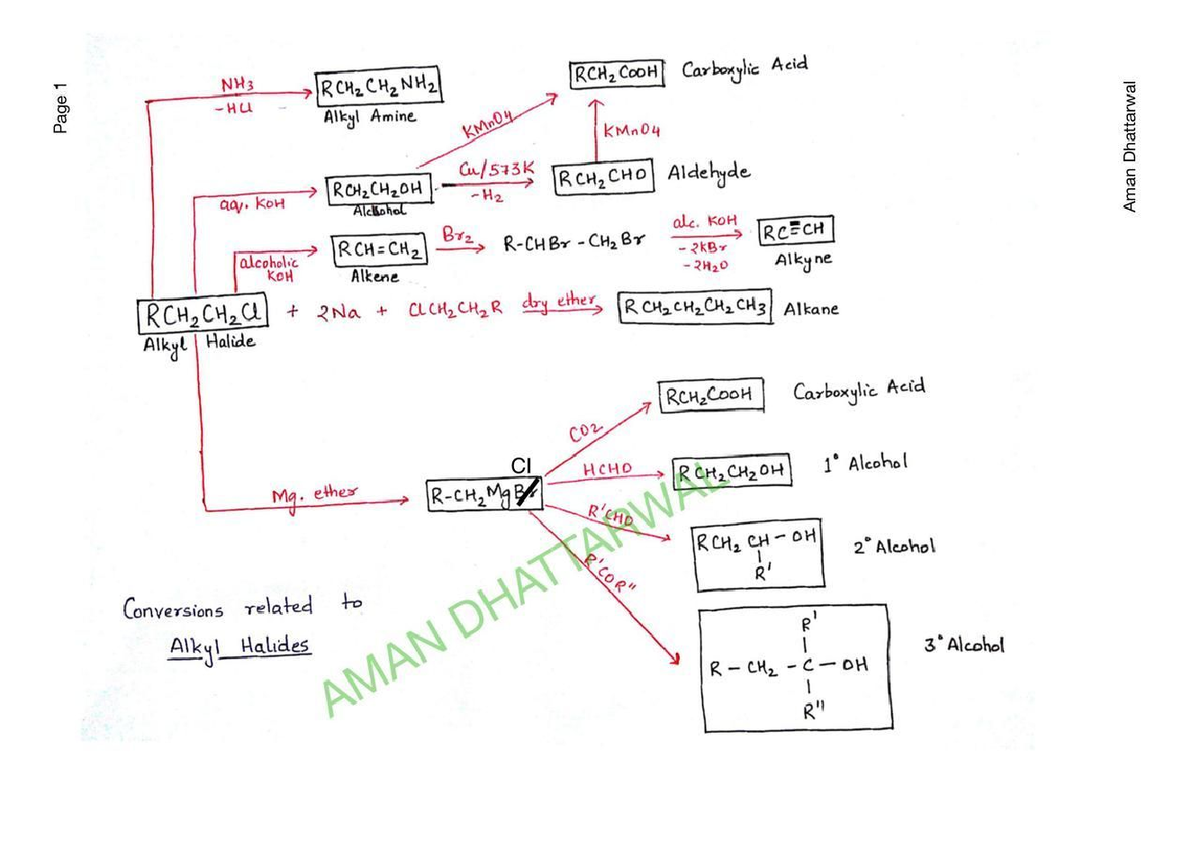 Page 1
Aman Dhattarwal
NH3
-HCl
RCH2CH2NH2
Alkyl Amine
KMnO4
RCH2COOH Carboxylic Acid
KMnO4
aqv. KOH
RCH2CH2OH
Alcohol
Cu/573K
-H2
RCH2CHO Aldehyde
alcoholic
KOH
RCH=CH2
Alkene
Br2
R-CHBr-CH2Br
alc. KOH
-2KBr
-2H2O
RC≡CH
Alkyne
RCH2CH2Cl + 2Na + ClCH2CH2R dry ether RCH2CH2CH2CH3 Alkane
Alkyl Halide
Mg. ether
Cl
R-CH2MgBr
CO2
RCH2COOH Carboxylic Acid
HCHO
RCH2CH2OH 1° Alcohol
R'CHO
RCH2CH-OH 2° Alcohol
R'
R'COR"
R'
R-CH2-C-OH 3° Alcohol
R"
Conversions related to
Alkyl Halides
AMAN DHATTARWAL